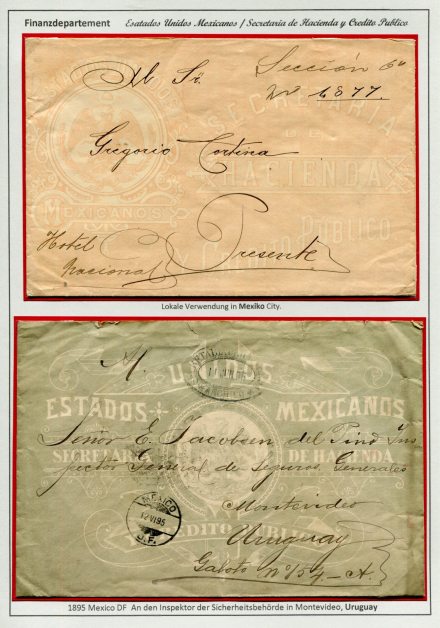 Finanzdepartement Esatados Unidos Mexicanos / Secretaria de Hacienda y Credito Publico
Sección 6a
Al Sr. No 6877.
ESTADOS UNIDOS
MEXICANOS
SECRETARIA
DE
HACIENDA
Y CREDITO PUBLICO
Gregorio Cortina
Hotel
Nacional
Presente
Lokale Verwendung in Mexiko City.
M.
UNIDOS
ESTADOS MEXICANOS
SECRETARIA DE HACIENDA
Y CREDITO PUBLICO
Señor E. Jacobsen del
Inspector General de Seguros Generales
Montevideo
Uruguay
Gaboto No 154-A.
MEXICO
12 VI 95
J.F.
1895 Mexico DF An den Inspektor der Sicherheitsbehörde in Montevideo, Uruguay